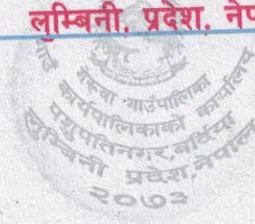 लुम्बिनी, प्रदेश, नेप
गेरुवा गाउँपालिका
गाउँ कार्यपालिकाको कार्यालय
पशुपतिनगर, बर्दिया
लुम्बिनी प्रदेश, नेपाल
२०७३